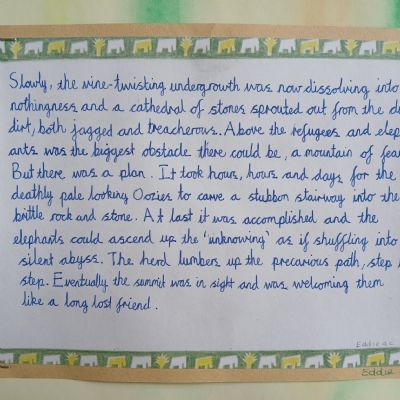 Slowly, the vine-twisting undergrowth was now dissolving into
nothingness and a cathedral of stones sprouted out from the
dirt, both jagged and treacherous. Above the refugees and
ants was the biggest obstacle there could be, a mountain of
But there was a plan. It took hours, hours and days for the
deathly pale looking Oozies to carve a stubbon stairway into the
brittle rock and stone. At last it was accomplished and the
elephants could ascend up the 'unknowing' as if shuffling into
silent abyss. The herd lumbers up the precarious path, step
step. Eventually the summit was in sight and was welcoming them
like a long lost friend.
Eddie